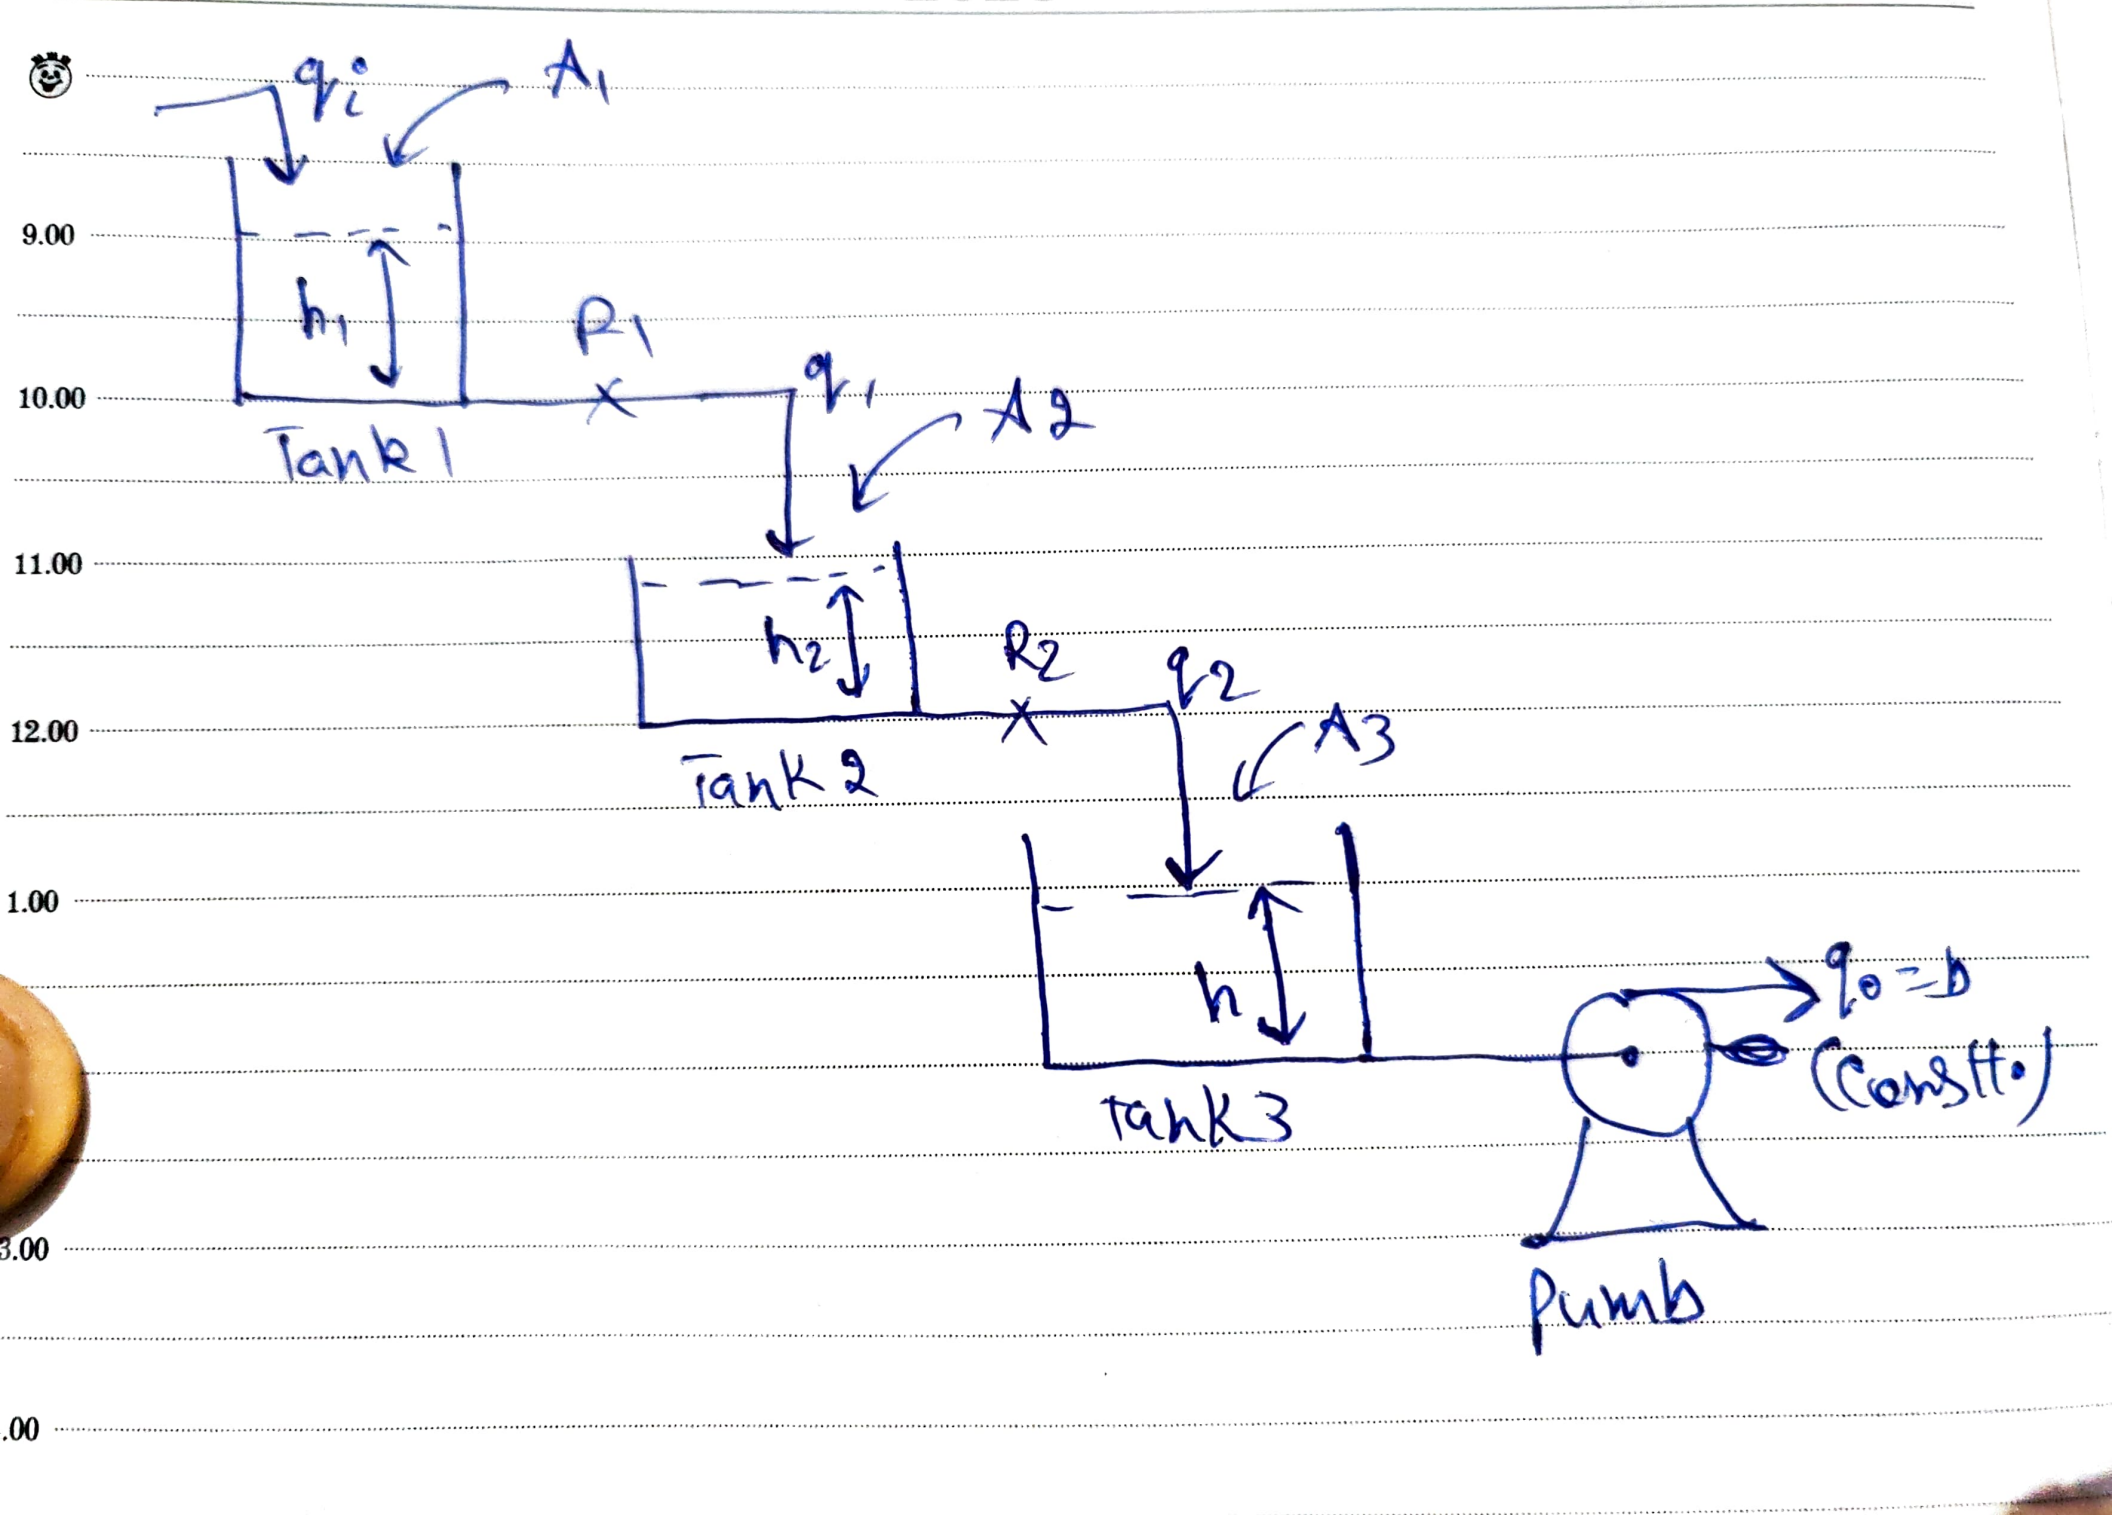 qi
A1
9.00
h1
R1
10.00
q1
A2
Tank 1
11.00
h2
R2
q2
12.00
A3
Tank 2
1.00
h
q0 = b
(Constt.)
Tank 3
3.00
Pumb
.00